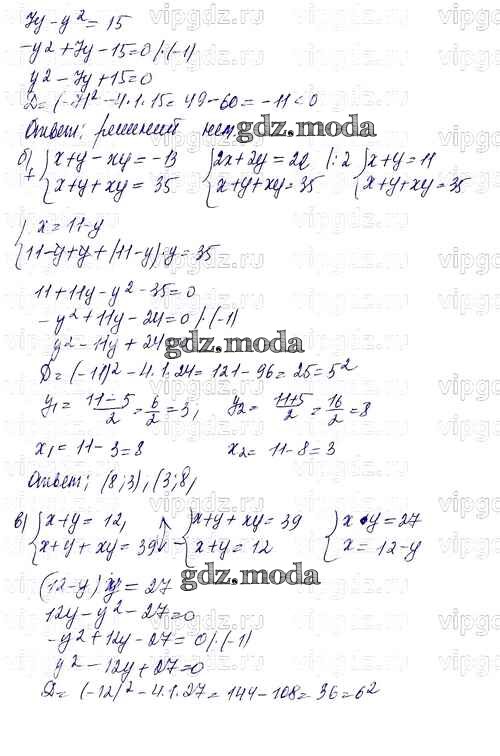 7y - y² = 15
-y² + 7y - 15 = 0 /·(-1)
y² - 7y + 15 = 0
D = (-7)² - 4·1·15 = 49 - 60 = -11 < 0
Ответ: решений нет.
gdz.moda
б) + { x + y - xy = -13 { 2x + 2y = 22 /:2 { x + y = 11
x + y + xy = 35 x + y + xy = 35 x + y + xy = 35
{ x = 11 - y
11 - y + y + (11 - y)·y = 35
11 + 11y - y² - 35 = 0
-y² + 11y - 24 = 0 /·(-1)
y² - 11y + 24 = 0
gdz.moda
D = (-11)² - 4·1·24 = 121 - 96 = 25 = 5²
y₁ = (11 - 5)/2 = 6/2 = 3; y₂ = (11 + 5)/2 = 16/2 = 8
x₁ = 11 - 3 = 8 x₂ = 11 - 8 = 3
Ответ: (8;3), (3;8)
в) { x + y = 12, { x + y + xy = 39 { x·y = 27
x + y + xy = 39 - x + y = 12 x = 12 - y
(12 - y)·y = 27
gdz.moda
12y - y² - 27 = 0
-y² + 12y - 27 = 0 /·(-1)
y² - 12y + 27 = 0
D = (-12)² - 4·1·27 = 144 - 108 = 36 = 6²
vipgdz.ru